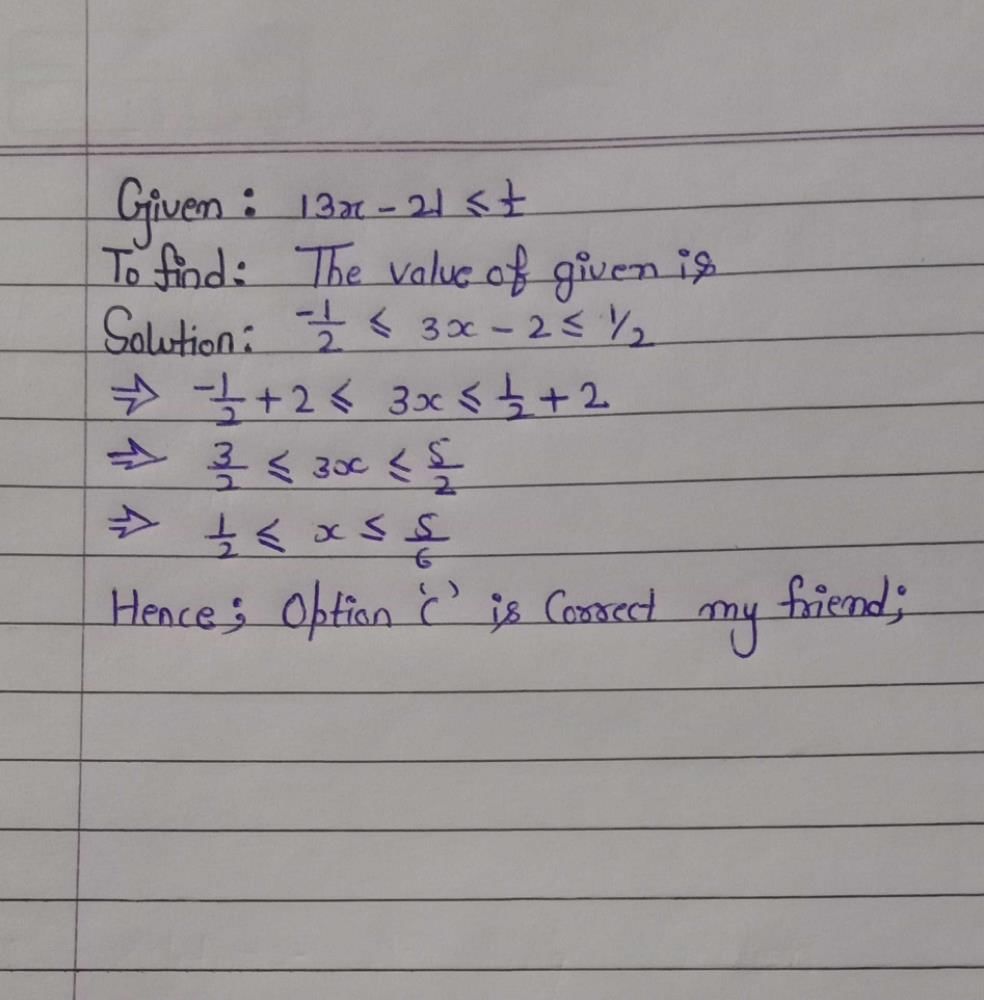 Given: |3x - 2| ≤ 1/2
To find: The value of given is
Solution: -1/2 ≤ 3x - 2 ≤ 1/2
⇒ -1/2 + 2 ≤ 3x ≤ 1/2 + 2
⇒ 3/2 ≤ 3x ≤ 5/2
⇒ 1/2 ≤ x ≤ 5/6
Hence; Option 'c' is Correct my friend;